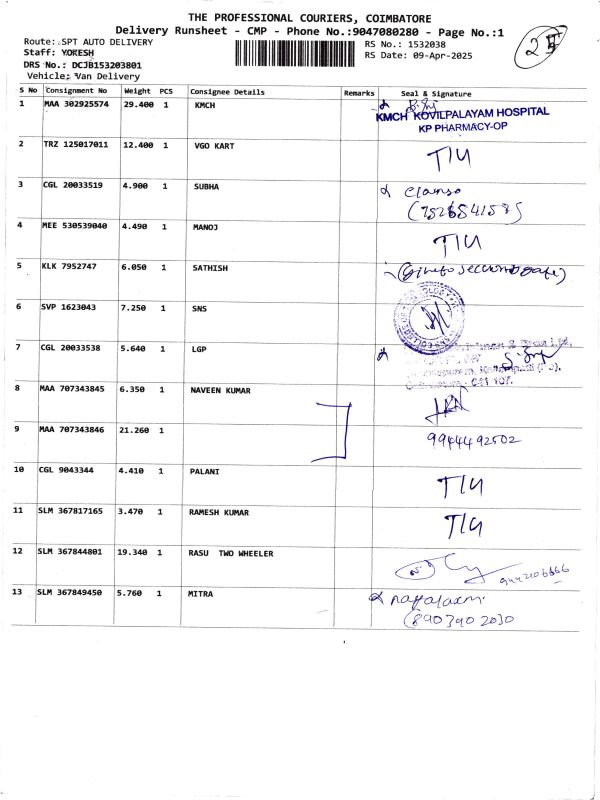 THE PROFESSIONAL COURIERS, COIMBATORE
Delivery Runsheet - CMP - Phone No.:9047080280 - Page No.:1
Route: SPT AUTO DELIVERY
RS No.: 1532038
Staff: YOKESH
RS Date: 09-Apr-2025
DRS No.: DCJB153203801
Vehicle: Van Delivery
S No Consignment No Weight PCS Consignee Details Remarks Seal & Signature
1 MAA 302925574 29.400 1 KMCH
KMCH KOVILPALAYAM HOSPITAL
KP PHARMACY-OP
2 TRZ 125017011 12.400 1 VGO KART
T/U
3 CGL 20033519 4.900 1 SUBHA
4 MEE 530539040 4.490 1 MANOJ
T/U
5 KLK 7952747 6.050 1 SATHISH
6 SVP 1623043 7.250 1 SNS
7 CGL 20033538 5.640 1 LGP
8 MAA 707343845 6.350 1 NAVEEN KUMAR
9 MAA 707343846 21.260 1
9944492502
10 CGL 9043344 4.410 1 PALANI
T/U
11 SLM 367817165 3.470 1 RAMESH KUMAR
T/U
12 SLM 367844801 19.340 1 RASU TWO WHEELER
13 SLM 367849450 5.760 1 MITRA
(8903902030